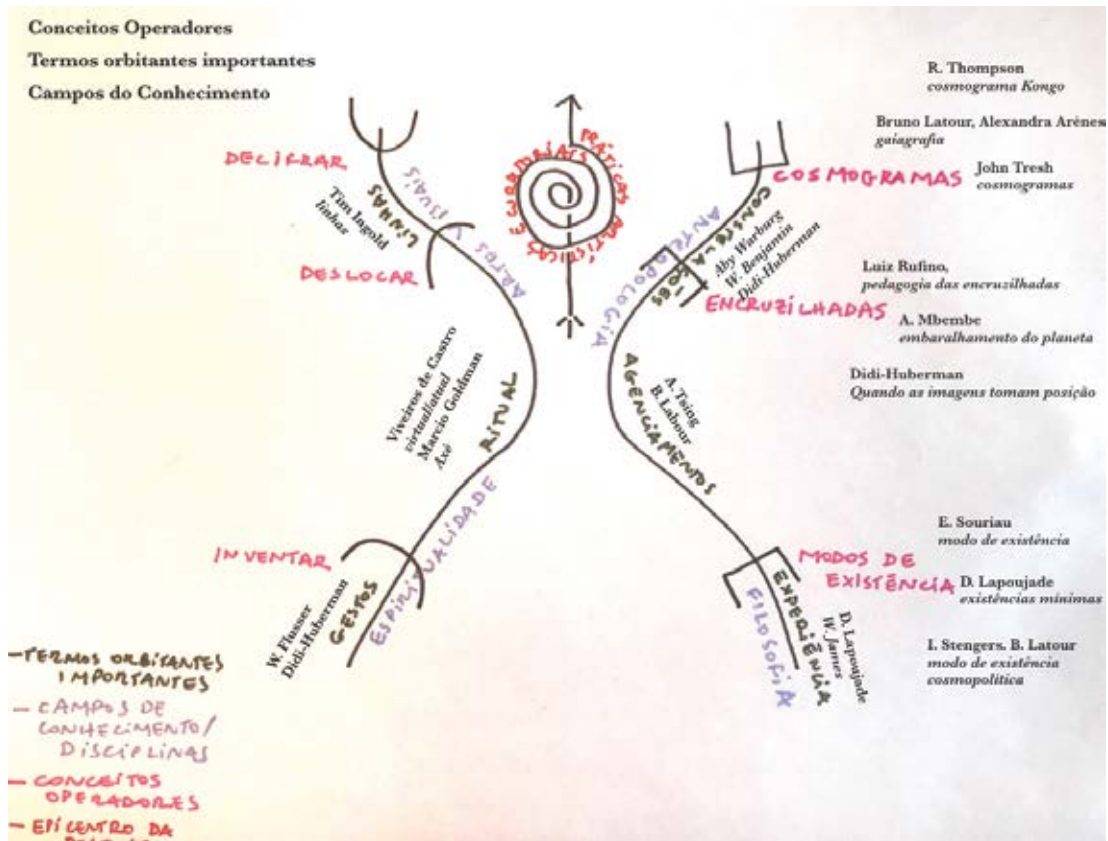 Conceitos Operadores
Termos orbitantes importantes
Campos do Conhecimento
DECIFRAR
LINHAS
Tim Ingold
linhas
ARTES VISUAIS
DESLOCAR
PRÁTICAS ARTÍSTICAS E CURADORIAIS
Viveiros de Castro
virtual/atual
Marcio Goldman
Axé
RITUAL
INVENTAR
GESTOS
W. Flusser
Didi-Huberman
ESPIRITUALIDADE
COSMOGRAMAS
CONSTELAÇÕES
Aby Warburg
W. Benjamin
Didi-Huberman
ANTROPOLOGIA
ENCRUZILHADAS
AGENCIAMENTOS
A. Tsing
B. Labour
MODOS DE
EXISTÊNCIA
EXPERIÊNCIA
D. Lapoujade
W. James
FILOSOFIA
R. Thompson
cosmograma Kongo
Bruno Latour, Alexandra Arènes
gaiagrafia
John Tresh
cosmogramas
Luiz Rufino,
pedagogia das encruzilhadas
A. Mbembe
embaralhamento do planeta
Didi-Huberman
Quando as imagens tomam posição
E. Souriau
modo de existência
D. Lapoujade
existências mínimas
I. Stengers. B. Latour
modo de existência
cosmopolítica
— TERMOS ORBITANTES
IMPORTANTES
— CAMPOS DE
CONHECIMENTO/
DISCIPLINAS
— CONCEITOS
OPERADORES
— EPICENTRO DA